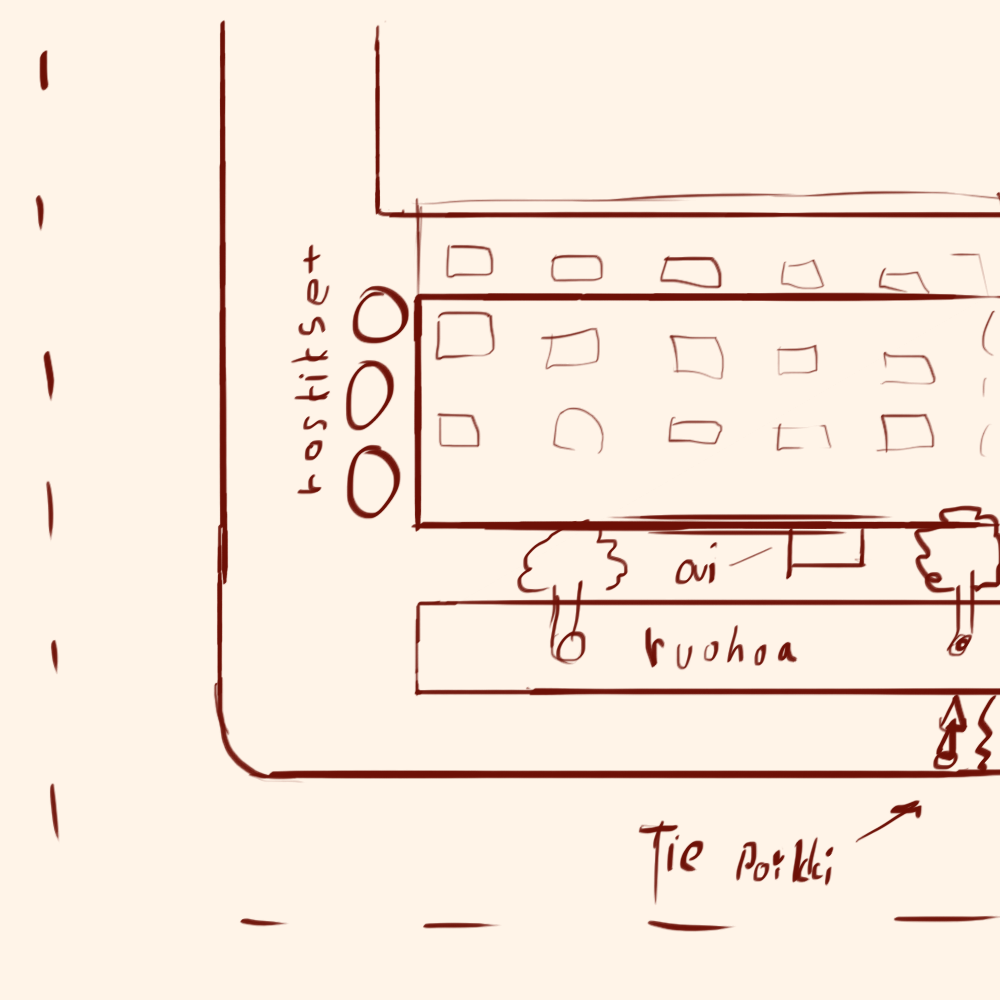 roskikset
ovi
ruohoa
Tie poikki